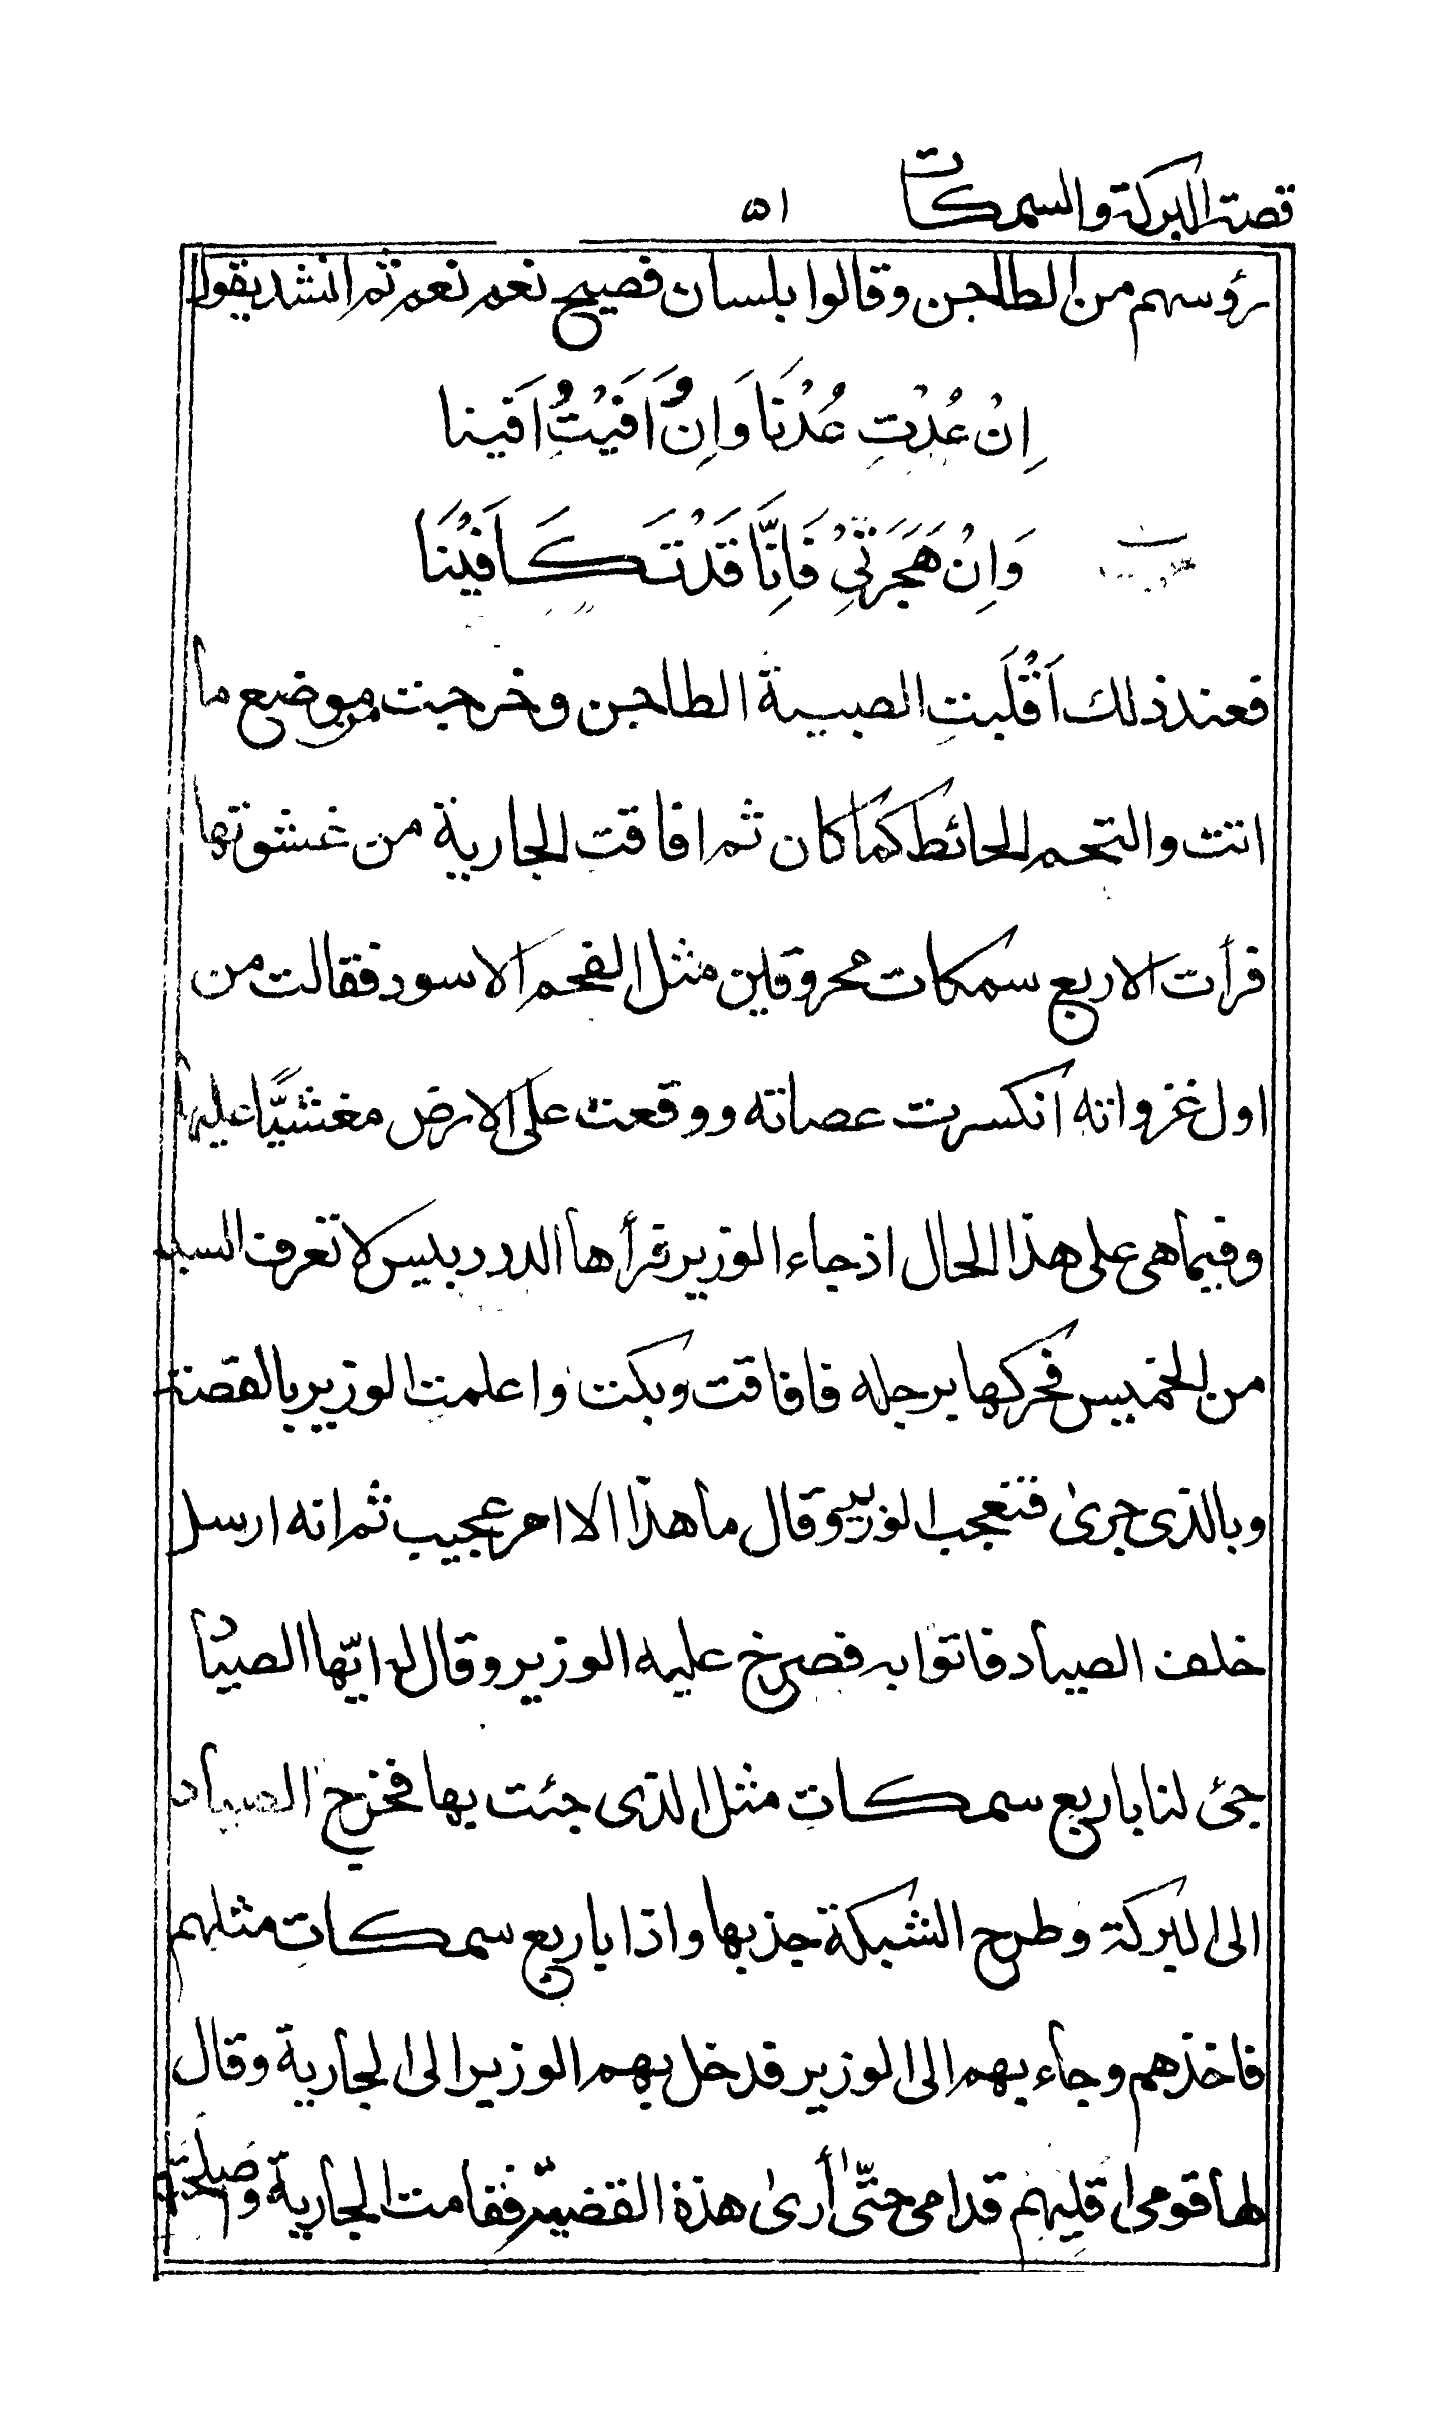 قصة البركة والسمكات
٥١
رؤسهم من الطاجن وقالوا بلسان فصيح نعم نعم ثم انشد يقول
اِنْ عُدْتِ عُدْنَا وَاِنْ وَافَيْتُ وَافَينا
وَاِنْ هَجَرْتِيْ فَاِنَّا قَدْ تَكَافَيْنَا
فعند ذلك اَقْلَبتِ الصبية الطاجن وخرجت من موضع ما
اتت والتحم الحائط كما كان ثم افاقت الجارية من غشوتها
فرأت الاربع سمكات محروقين مثل الفحم الاسود فقالت من
اول غزواته انكسرت عصاته ووقعت على الارض مغشيًّا عليها
وفيما هى على هذا الحال اذ جاء الوزير فرأها الدردبيس لا تعرف السبت
من الخميس فحركها برجله فافاقت وبكت واعلمت الوزير بالقصة
وبالذى جرىٰ فتعجب الوزير وقال ما هذا الا امر عجيب ثم انه ارسل
خلف الصياد فاتوا به فصرخ عليه الوزير وقال له ايّها الصياد
جئ لنا باربع سمكات مثل الذى جئت بها فخرج الصياد
الى البركة وطرح الشبكة جذبها واذا باربع سمكات مثلهم
فاخذهم وجاء بهم الى الوزير فدخل بهم الوزير الى الجارية وقال
لها قومى اقليهم قدامى حتّىٰ أرىٰ هذه القضيّة فقامت الجارية وصلحت